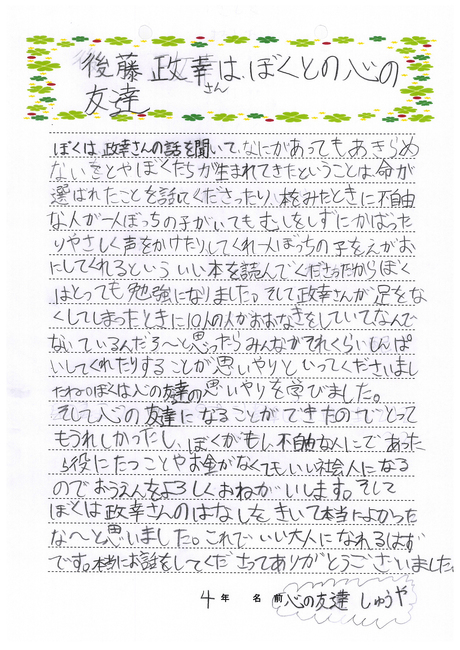 後藤政幸さんは、ぼくとの心の
友達
ぼくは、政幸さんの話を聞いて、なにがあってもあきらめ
ないことやぼくたちが生まれてきたということは、命が
選ばれたことを話てくださったり、本をみたときに不自由
な人が一人ぼっちの子がいてもむしをしずにかばった
りやさしく声をかけたりしてくれ一人ぼっちの子をえがお
にしてくれるといういい本を読んでくださったからぼく
はとっても勉強になりました。そして政幸さんが足をな
くしてしまったときに10人の人がおおなきをしていて、なんで
ないているんだろ〜と思ったらみんながそれくらいしんぱ
いしてくれたりすることが思いやりといってくださいまし
たね。ぼくは心の友達の思いやりを学びました。
そして心の友達になることができたのでとって
もうれしかったし、ぼくがもし、不自由な人にであった
ら役にたつことやお金がなくてもいい社会人になる
のでおうえんをよろしくおねがいします。そして
ぼくは政幸さんのはなしをきいて本当によかった
な〜と思いました。これでいい大人になれるはず
です。本当にお話をしてくださってありがとうございました。
4年 名前 心の友達 しゅうや